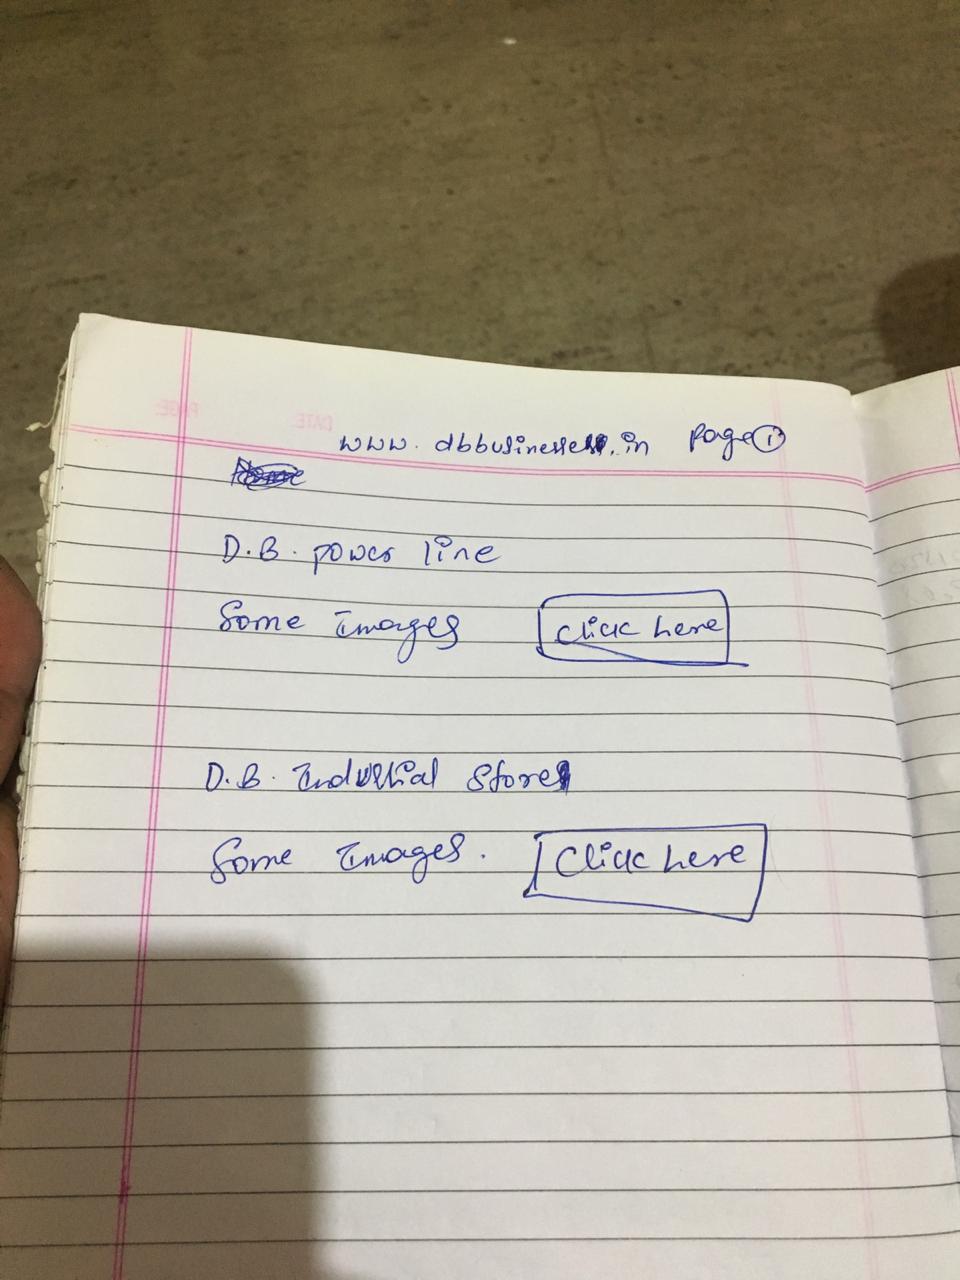 www.dbbusinesses.in Page ①
D.B. power line
Some Images Click here
D.B. Industrial Stores
Some Images. Click here